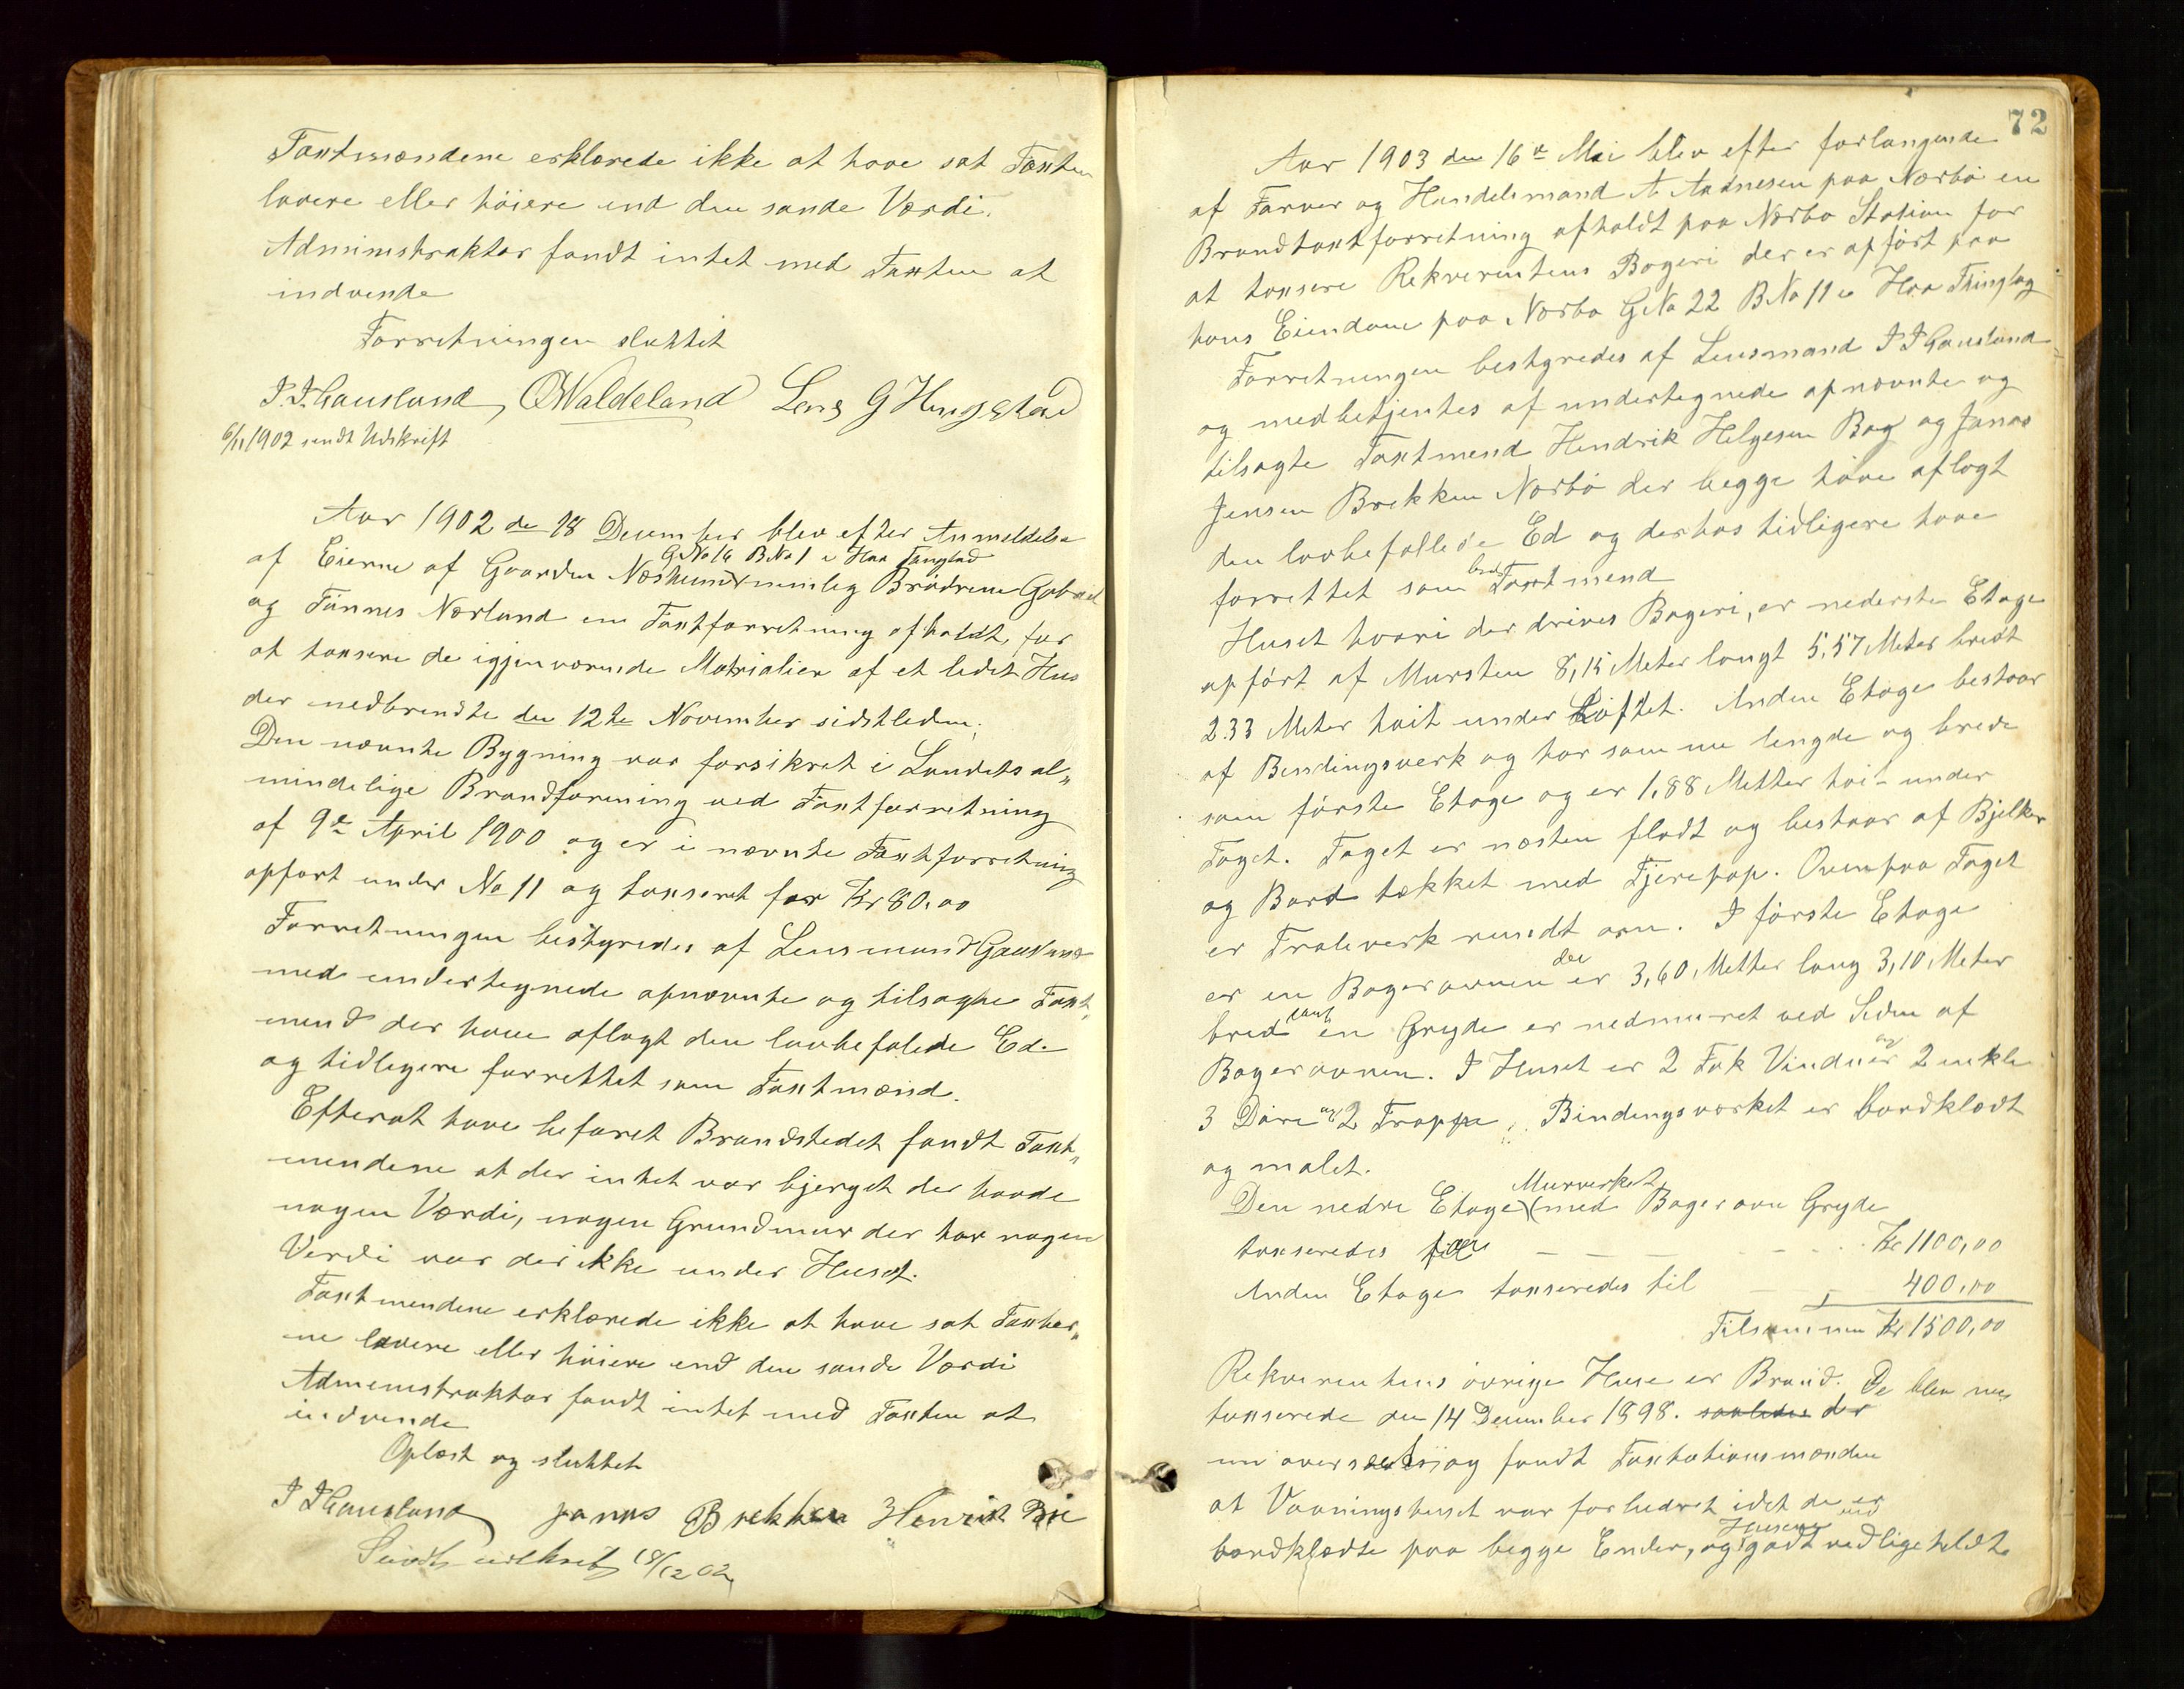 Taxtmændene erklærede ikke at have sat Taxten
lavere eller høiere end den sande Værdi.
Administraktor fandt intet med Taxten at
indvende
Forretningen sluttet
I. I. Gausland, O Waldeland Lars G Hengstad
6/11 1902 sendt Udskrift
Aar 1902 den 18 December blev efter Anmeldelse
GNo 16 BNo 1 i Haa Tinglag
af Eierne af Gaarden Næsheim nemlig Brødrene Gabriel
og Tønnes Nærland en Taxtforretning afholdt, for
at taxsere de igjenværende Matrialier af et ledet Hus
der nedbrendte den 12te November sidstleden.
Den nævnte Bygning var forsikret i Landets al„
mindelige Brandforening ved Taxtforretning
af 9de April 1900 og er i nævnte Taxtforretning
opført under No 11 og taxseret for Kr 80,00
Forretningen bestyredes af Lensmand Gausland
med undertegnede opnævnte og tilsagte Taxt„
mend der have aflagt den lovbefalede Ed
og tidligere forrettet som Taxtmænd.
Efterat have befaret Brandstedet fandt Taxt„
mendene at der intet var bjerget der havde
nogen Værdi, nogen Grundmur der har nogen
Verdi var der ikke under Huset.
Taxtmendene erklærede ikke at have sat Taxter„
ne lavere eller høiere end den sande Værdi
Admenistraktor fandt intet med Taxten at
indvende
Oplæst og sluttet
I I Gausland Janas Brekken Henrik Bø
Sendt udskrift 18/12 02
72
Aar 1903 den 16de Mai blev efter forlangende
af Farver og Handelsmand A. Aadnesen paa Nærbø en
Brandtaxtforretning afholdt paa Nærbø Station for
at taxsere Rekverentens Bageri der er opført paa
hans Eiendom paa Nærbø GNo 22 BNo 11 i Haa Thinglag
Forretningen bestyredes af Lensmand I I Gausland
og medbetjentes af undertegnede opnævnte og
tilsagte Taxtmend Hendrik Helgesen Bø og Janas
Jensen Brekken Nærbø der begge have aflagt
den lovbefallede Ed og derhos tidligere have
forrettet som Taxtmend
Huset hvori der drives Bageri, er nederste Etage
opført af Mursten 8,15 Meter langt 5,57 Meter bredt
2.33 Meter høit under Løftet. Anden Etage bestaar
af Bendingsverk og har samme lengde og brede
som første Etage og er 1,88 Metter høit under
Taget. Taget er næsten fladt og bestaar af Bjelker
og Bord tækket med Tjerepap. Ovenpaa Taget
er Traleverk rundt om. I første Etage
der
er en Bagerovnen er 3,60 Metter lang 3,10 Meter
samt
bred en Gryde er nedmuret ved Siden af
og
Bagerovnen. I Huset er 2 Fak Vinduer 2 enkle
3 Døre og 2 Trappe, Bindingsværket er bordklædt
og malet.
Murverket
Den nedre Etage (med Bagerovn Gryde
taxseredes for – – – – Kr 1100,00
Anden Etage taxseredes til " 400,00
Tilsammen Kr 1500,00
Rekverentens øvrige Huse er Brand. De blev
taxserede den 14 December 1898. saaledes der
og fandt Taxtationsmænden
at Vaaningshuset var forbedret idet de er
Husene
bordklædte paa begge Ender, og godt vedligeholdt